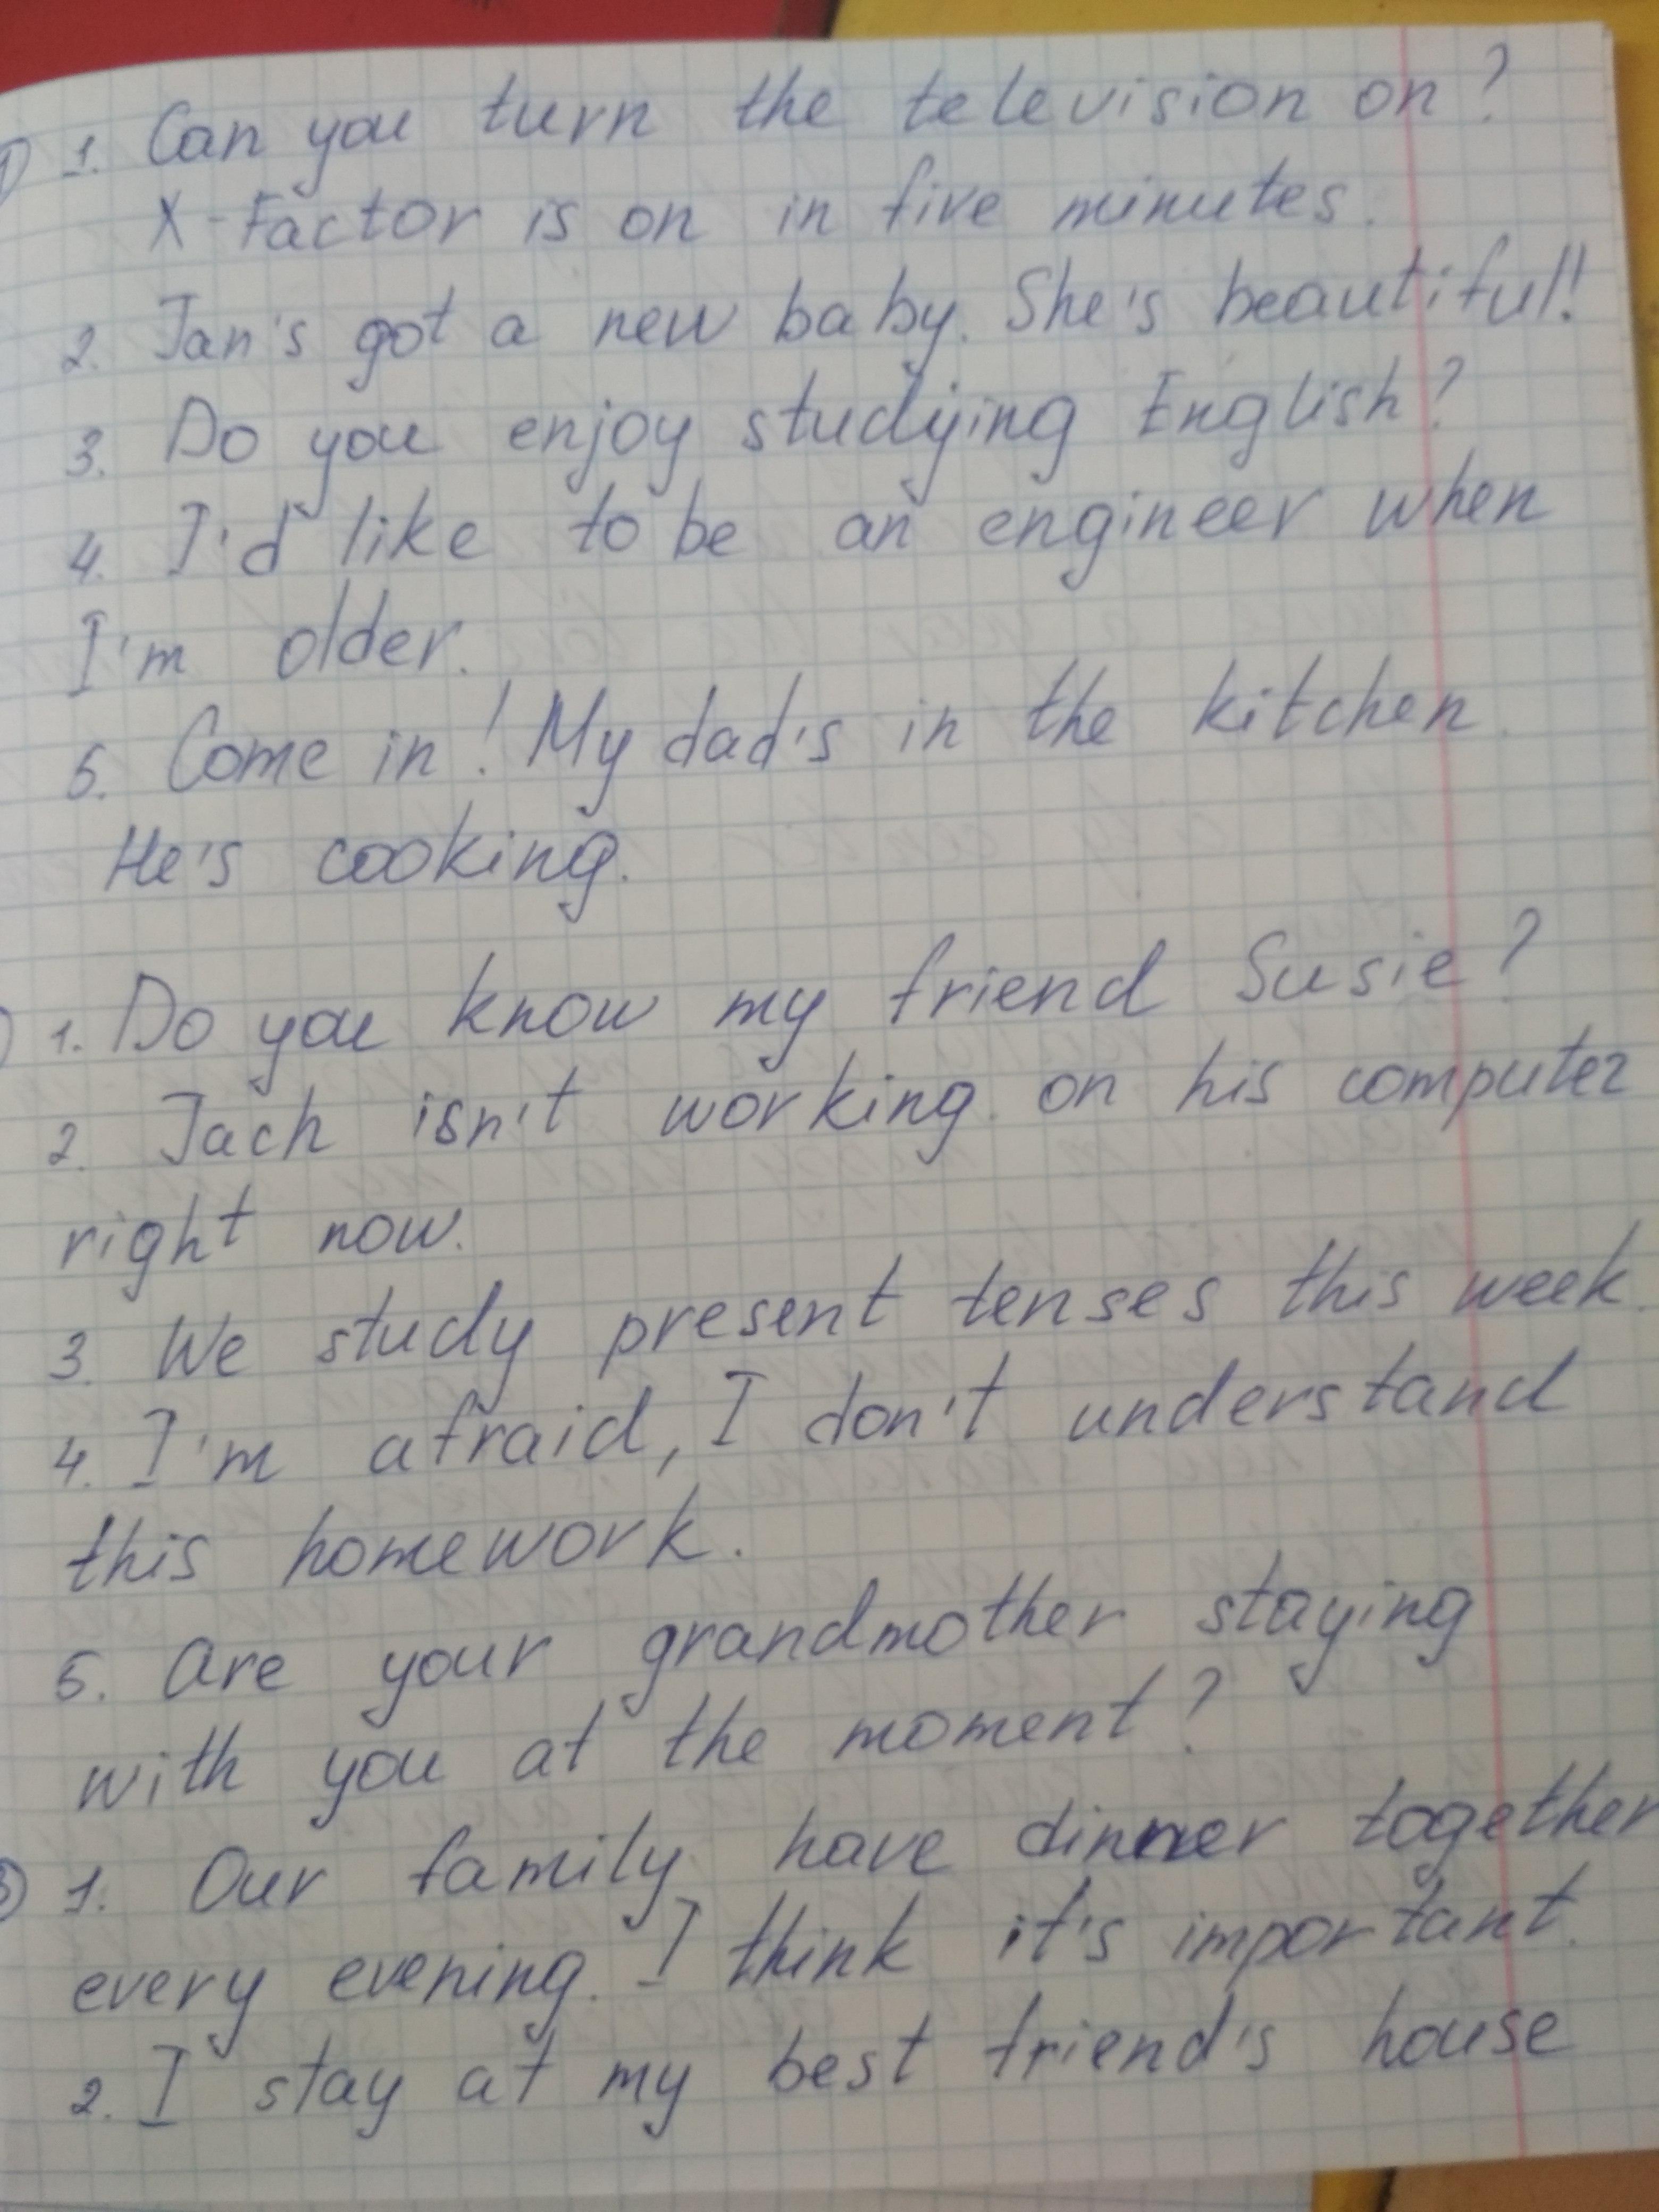 1) 1. Can you turn the television on?
X-Factor is on in five minutes.
2. Jan's got a new baby. She's beautiful!
3. Do you enjoy studying English?
4. I'd like to be an engineer when
I'm older.
5. Come in! My dad's in the kitchen.
He's cooking.
) 1. Do you know my friend Susie?
2. Jach isn't working on his computer
right now.
3. We study present tenses this week.
4. I'm afraid, I don't understand
this homework.
5. Are your grandmother staying
with you at the moment?
3) 1. Our family have dinner together
every evening. I think it's important.
2. I stay at my best friend's house